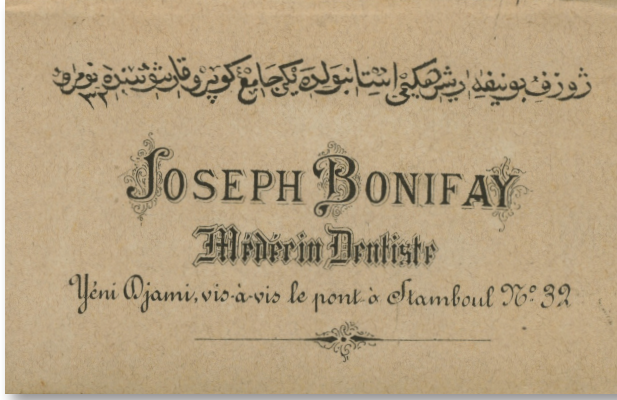 ژوزف بونیفه دیش حكیمی استانبولده یكی جامع كوپرو قارشوسنده نومرو ٣٢
JOSEPH BONIFAY
Médécin Dentiste
Yéni Djami, vis-à-vis le pont à Stamboul Nº 32